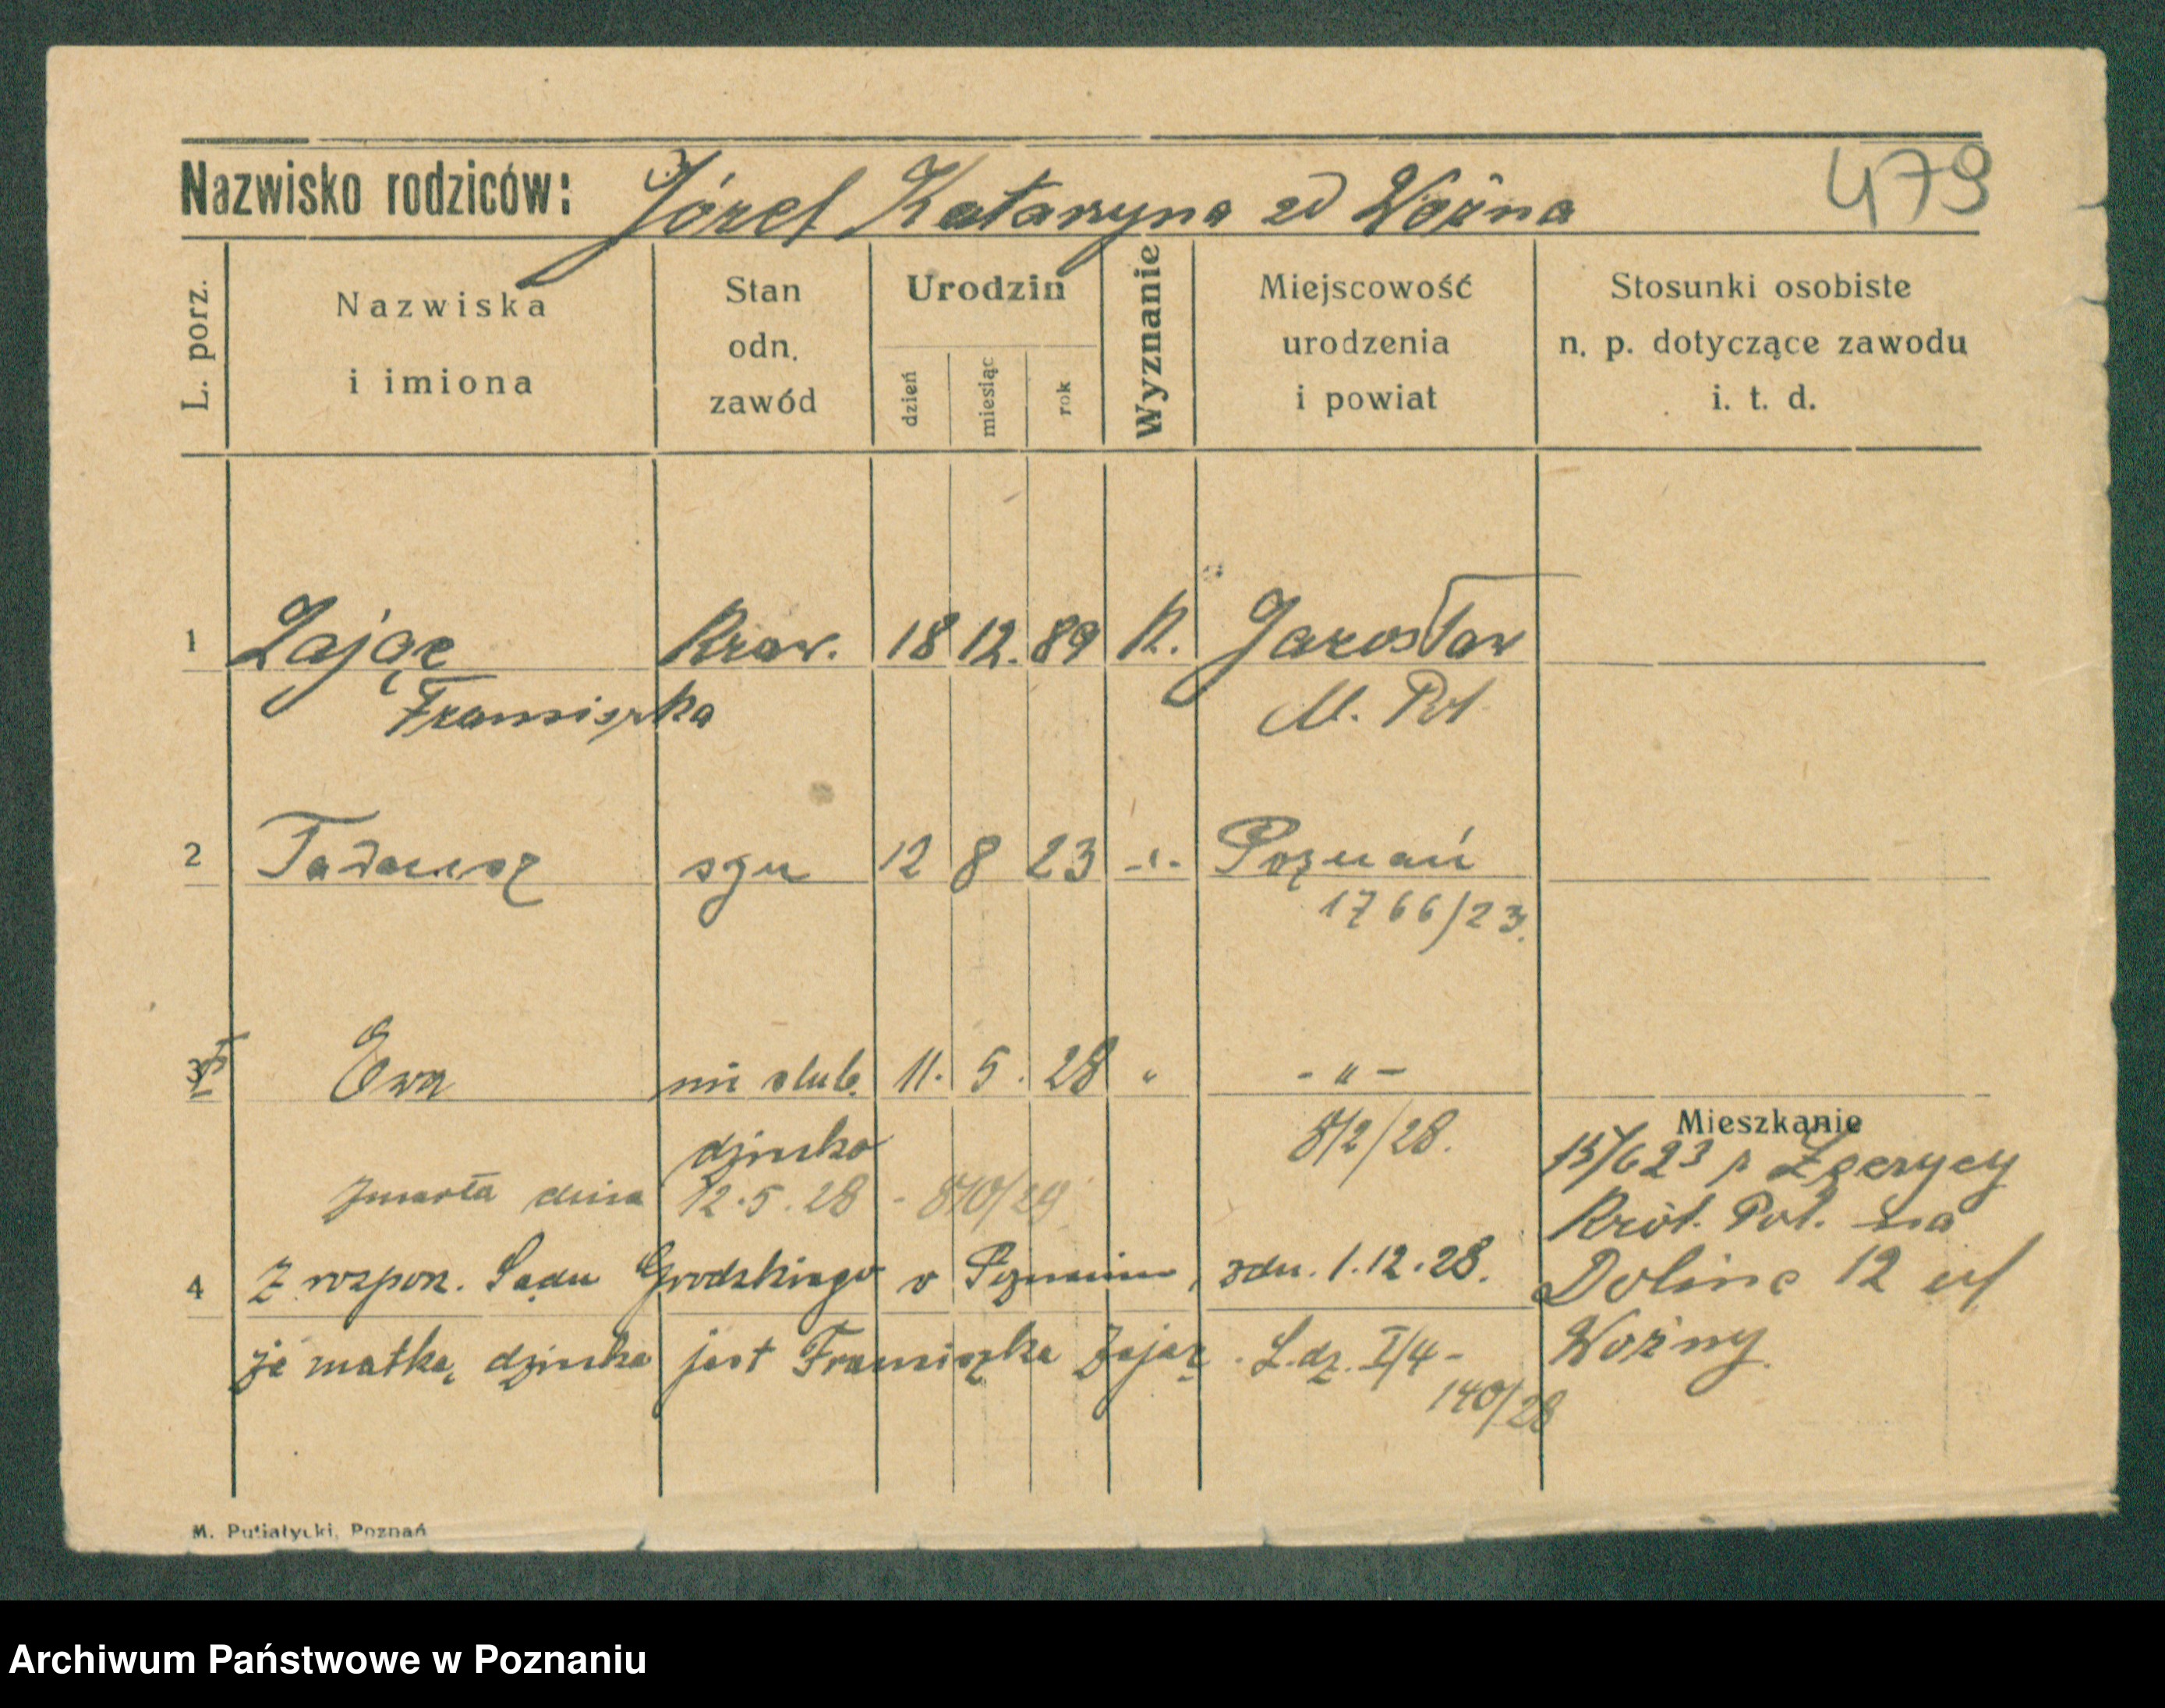 479
Nazwisko rodziców: Józef Katarzyna zd Woźna
L. porz.
Nazwiska i imiona
Stan odn. zawód
Urodzin
dzień miesiąc rok
Wyznanie
Miejscowość urodzenia i powiat
Stosunki osobiste n. p. dotyczące zawodu i. t. d.
1 Zając Kraw. 18 12. 89 K. Jarosław
Franciszka M. Pol
2 Tadeusz syn 12 8 23 -"- Poznań
1766/23.
3 Ewa nie ślub. 11. 5. 28 " - " -
dziecko 812/28.
Mieszkanie
zmarła dnia 12.5.28 - 870/29
15/6 23 z
Król. Pol. na
4 Z rozporz. Sądu Grodzkiego w Poznaniu, zdn. 1.12.28.
Dolina 12 u/
że matką dziecka jest Franciszka Zając. L.dz. I/4-
140/28
Woźny
M. Putiatycki, Poznań
Archiwum Państwowe w Poznaniu